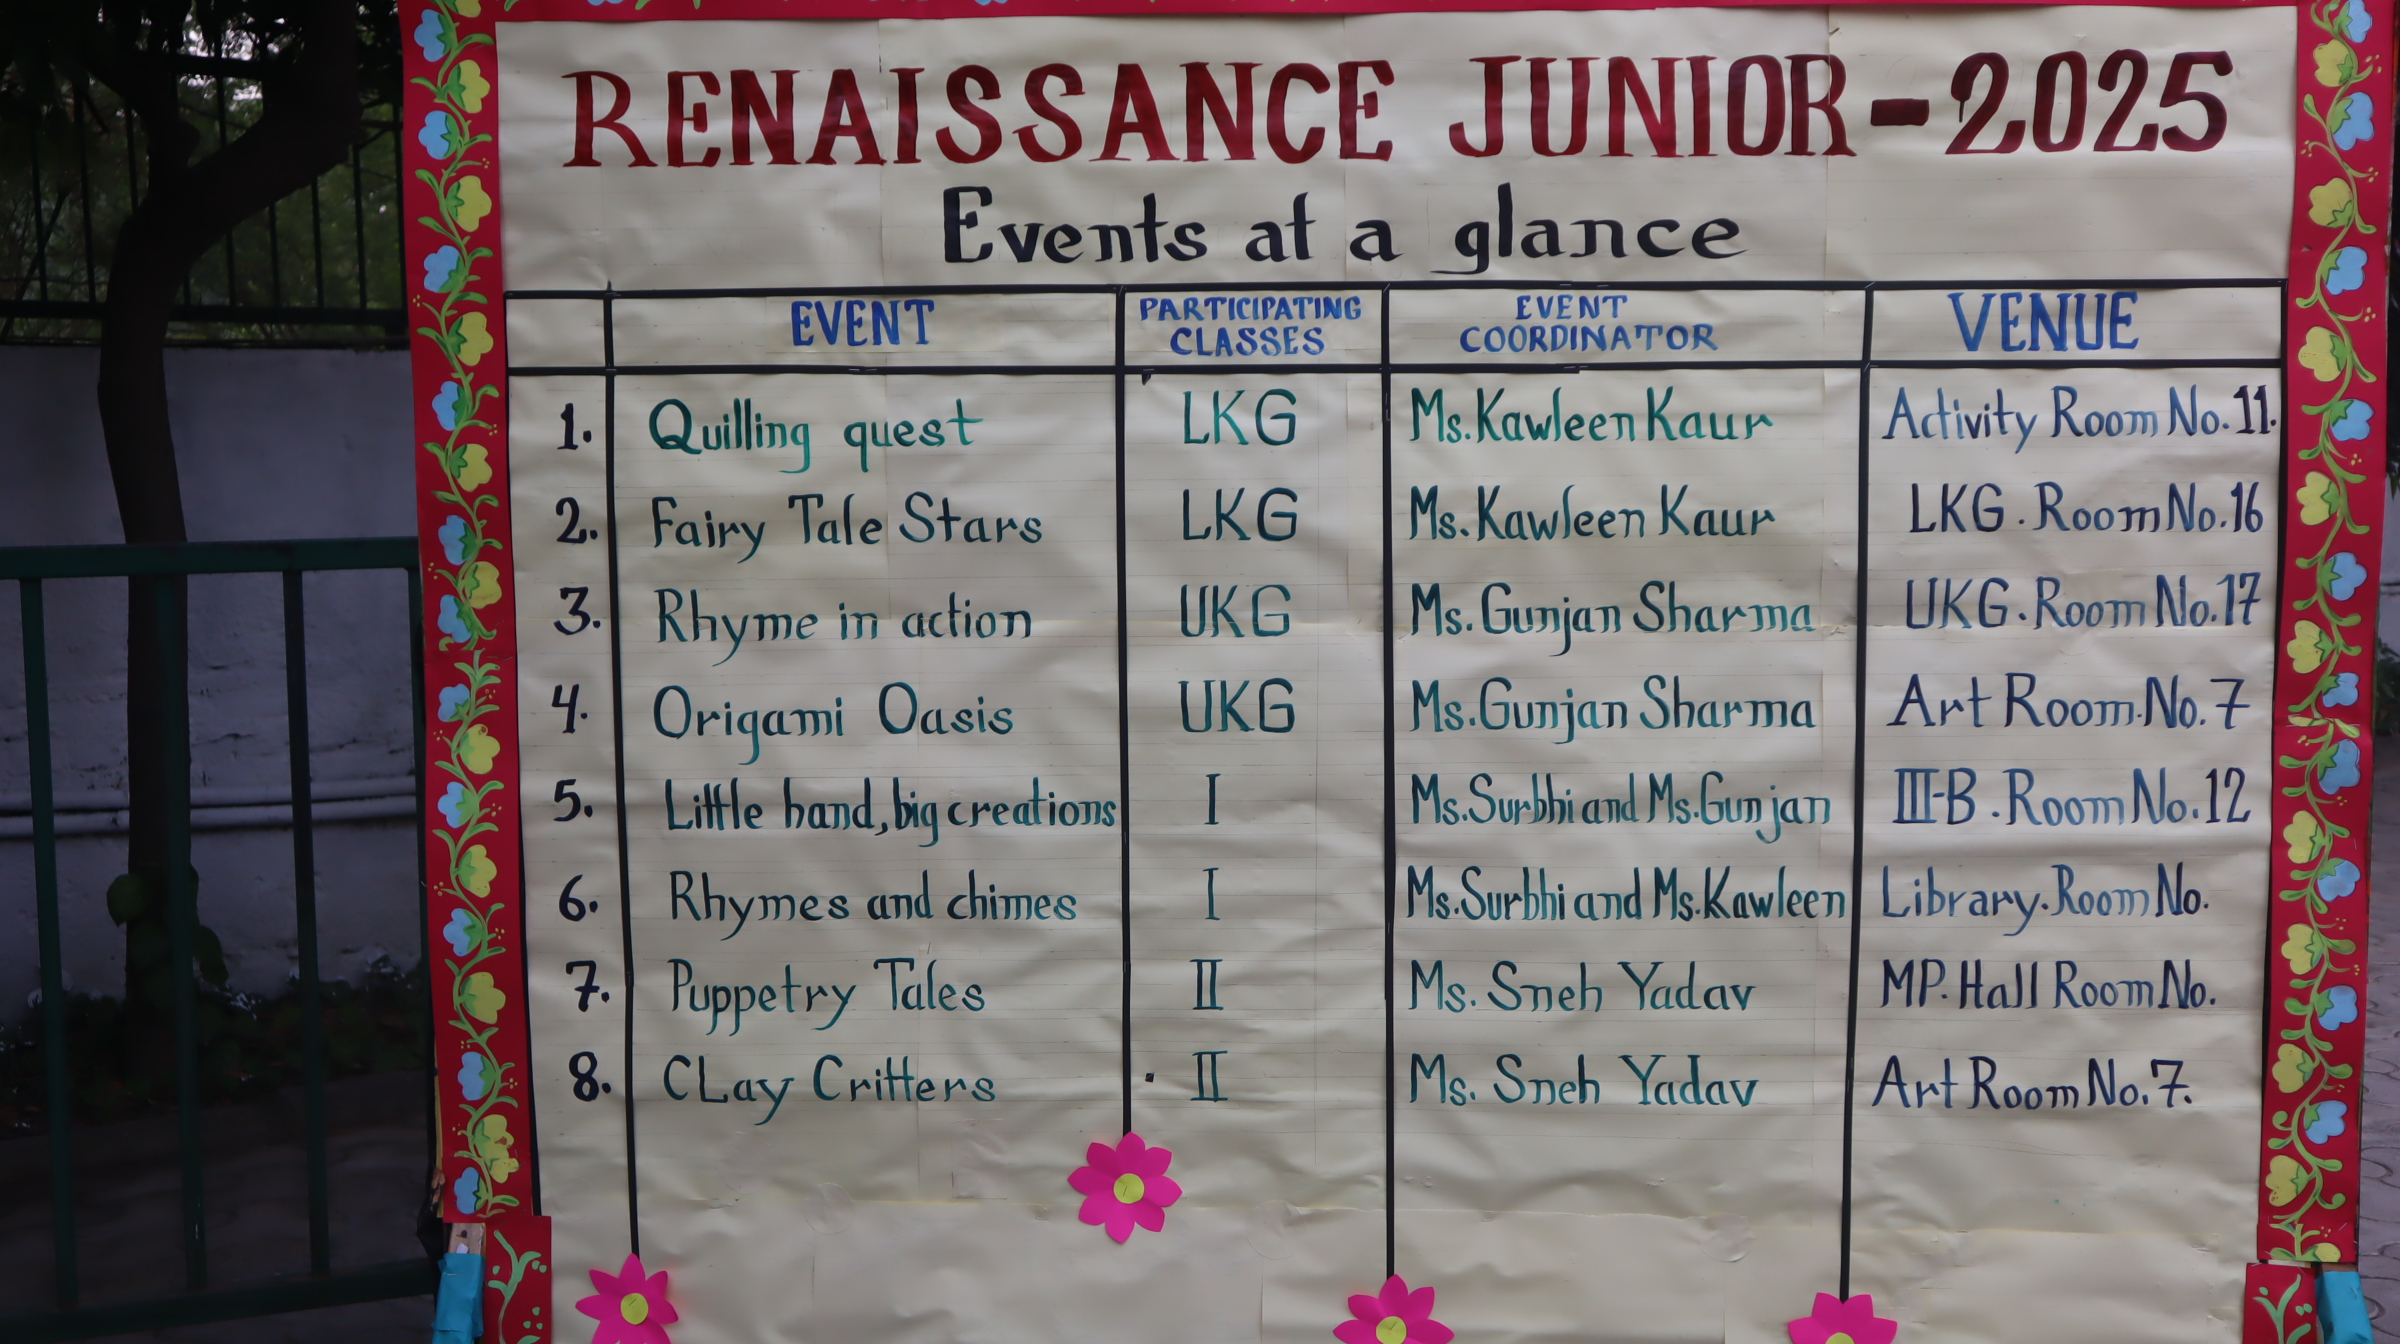 RENAISSANCE JUNIOR-2025
Events at a glance
EVENT PARTICIPATING CLASSES EVENT COORDINATOR VENUE
1. Quilling quest LKG Ms.Kawleen Kaur Activity Room No.11.
2. Fairy Tale Stars LKG Ms.Kawleen Kaur LKG.Room No.16
3. Rhyme in action UKG Ms.Gunjan Sharma UKG.Room No.17
4. Origami Oasis UKG Ms.Gunjan Sharma Art Room.No.7
5. Little hand,big creations I Ms.Surbhi and Ms.Gunjan III-B.Room No.12
6. Rhymes and chimes I Ms.Surbhi and Ms.Kawleen Library.Room No.
7. Puppetry Tales II Ms. Sneh Yadav MP.Hall Room No.
8. CLay Critters II Ms. Sneh Yadav Art Room No.7.